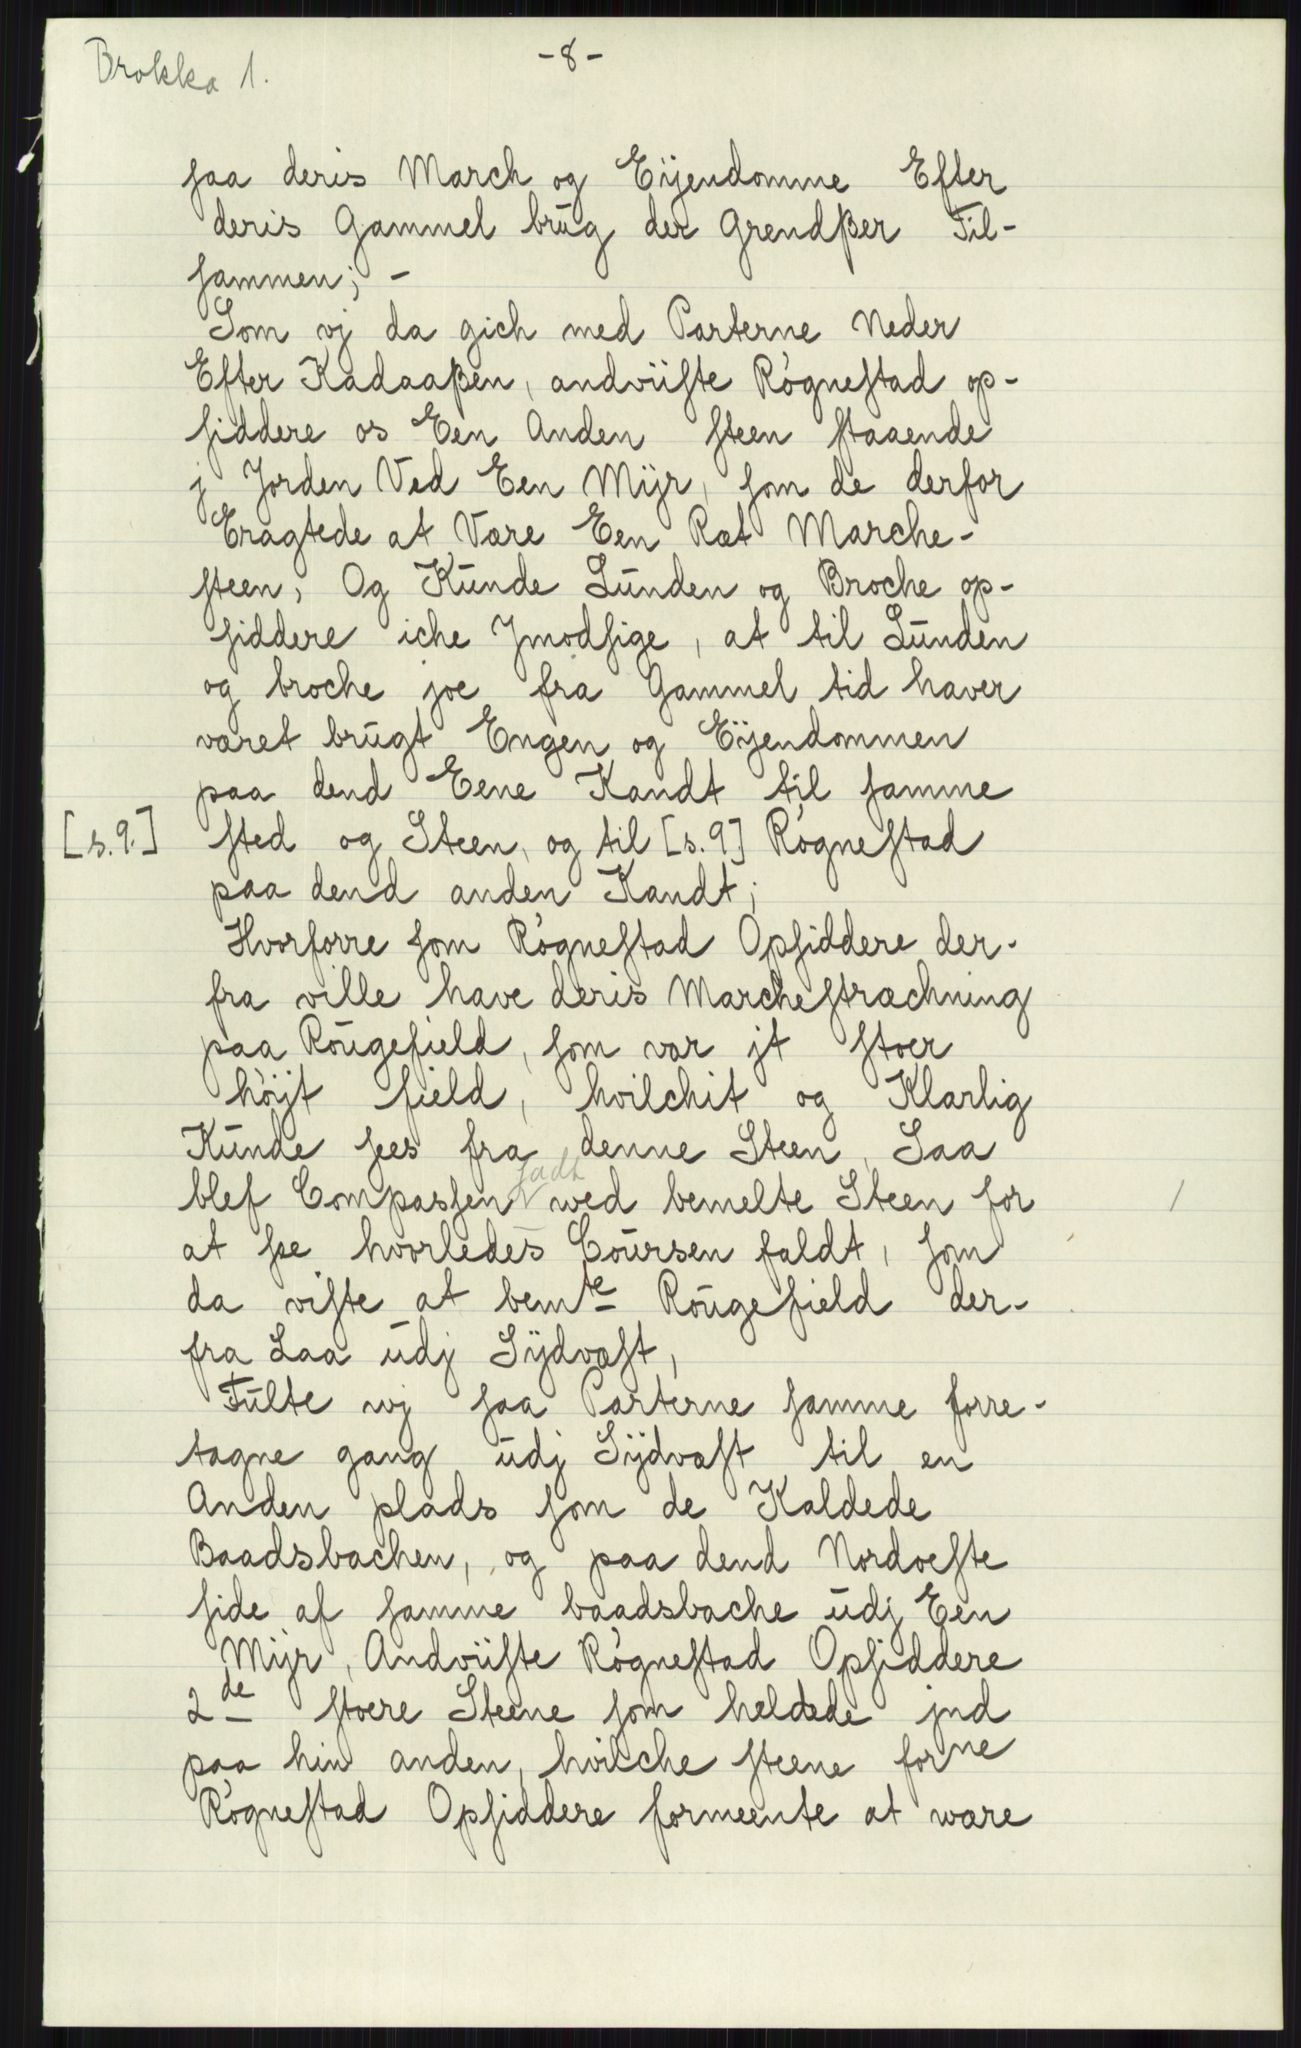 Brokka 1.
-8-
saa deris March og Eÿendomme Efter
deris Gammel brūg der Grendßer Til-
sammen; -
Som vj da gich med Parterne Neder
Efter Kadaaßen, andviiste Røgnestad op-
siddere os Een Anden steen staaende
j Jorden Ved Een Mÿr, som de derfor
Eragtede at Være Een Ræt Marche-
steen, Og Kūnde Lūnden og Broche op-
siddere iche Jmodsige, at til Lūnden
og broche joe fra Gammel tid haver
været brūgt Engen og Eÿendommen
paa dend Eene Kandt til samme
[s.9.] sted og Steen, og til [s.9] Røgnestad
paa dend anden Kandt;
Hvorforre som Røgnestad Opsiddere der-
fra ville have deris Marchestræchning
paa Roūgefield, som var jt stoer
højt field, hvilchit og Klarlig
Kūnde sees fra denne Steen, Saa
sadt
blef Compassen v wed bemelte Steen for /
at see hvorledes Coūrsen faldt, som
da viste at bemte Roūgefield der-
fra Laa ūdj Sÿdvæst,
Fūlte wj saa Parterne samme forre-
tagne gang ūdj Sÿdvæst til en
Anden plads som de Kaldede
Baadsbachen, og paa dend Nordoeste
side af samme baadsbache ūdj Een
Mÿr, Andviiste Røgnestad Opsiddere
2de stoere Steene som heldede jnd
paa hin anden, hvilche steene forne
Røgnestad Opsiddere formeente at wære